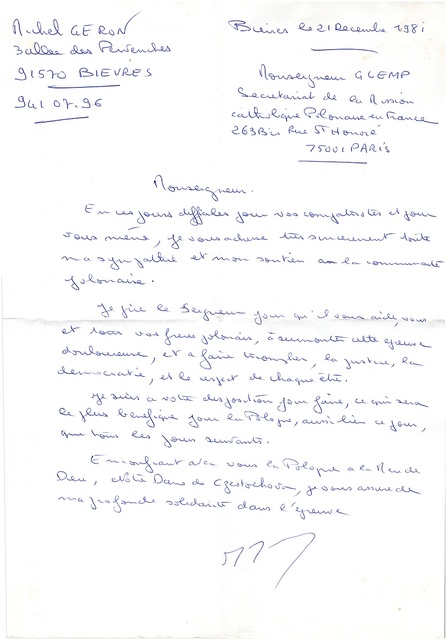 Michel GERON
3 allée des Pervenches
91570 BIEVRES
941.07.96
Bièvres le 21 Decembre 1981
Monseigneur GLEMP
Secretariat de la Mission
catholique Polonaise en France
263 Bis Rue St Honoré
75001 PARIS
Monseigneur.
En ces jours difficiles pour vos compatriotes et pour
vous même, je vous adresse très sincerement toute
ma sympathie et mon soutien a la communauté
polonaise.
Je prie le Seigneur pour qu'il vous aide, vous
et tous vos freres polonais, à surmonter cette epreuve
douloureuse, et a faire triompher, la justice, la
democratie, et le respect de chaque être.
Je suis a votre disposition pour faire, ce qui sera
le plus benefique pour la Pologne, aussi bien ce jour,
que tous les jours suivants.
En confiant avec vous la Pologne a la Mere de
Dieu, Nôtre Dame de Czestochova, je vous assure de
ma profonde solidarité dans l'épreuve